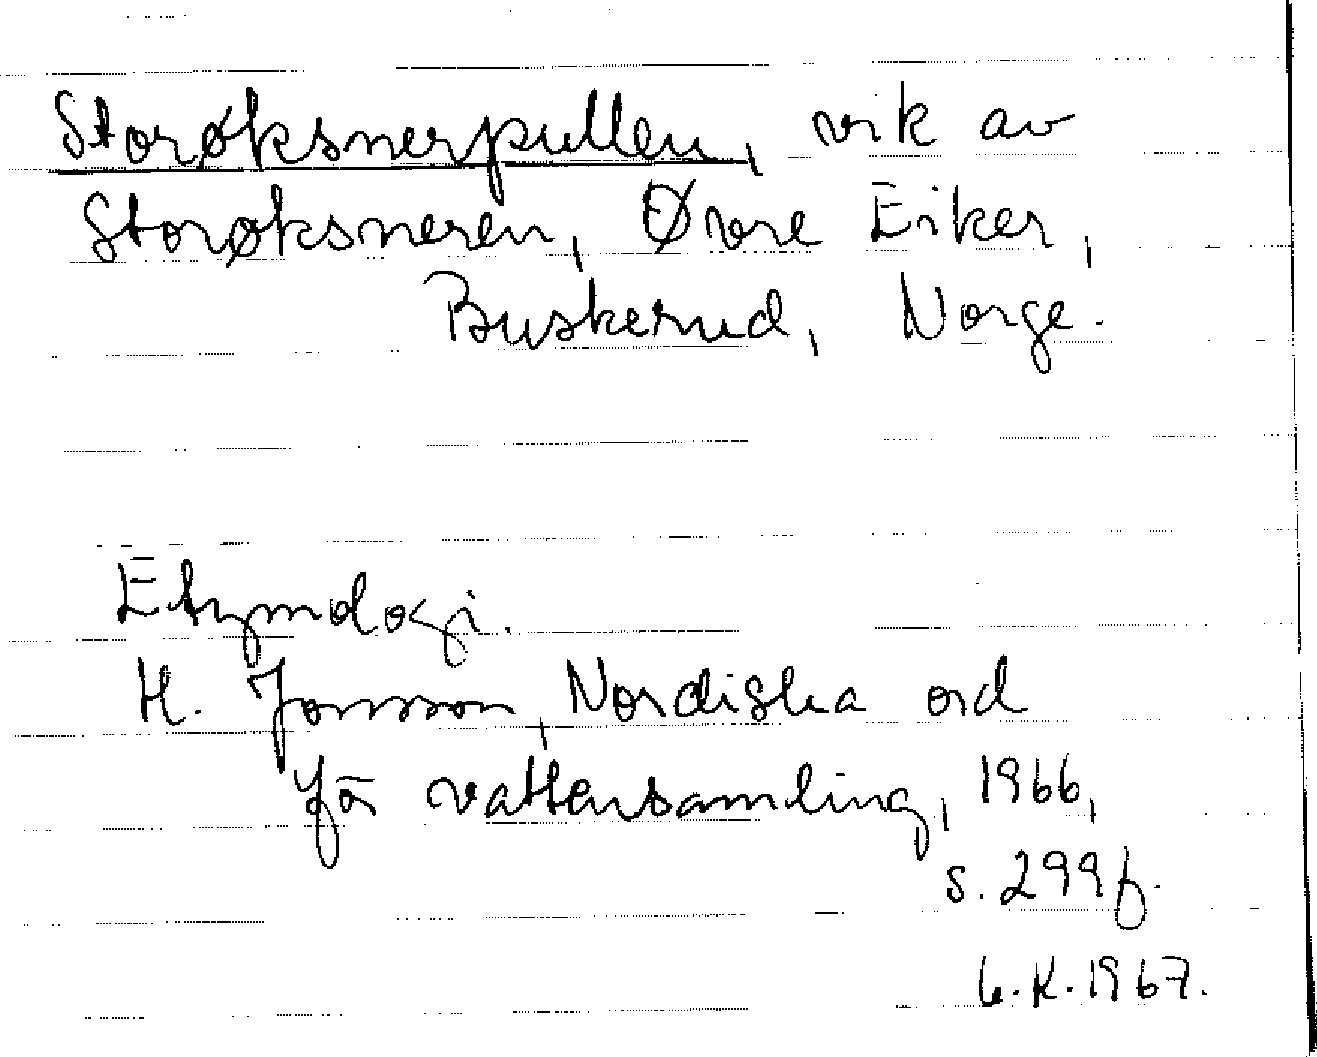 Storøksnerpullen, vik av
Storøksneren, Øvre Eiker,
Buskerud, Norge.
Etymologi.
H. Jonsson, Nordiska ord
för vattensamling, 1966,
s. 299f.
L.K. 1967.